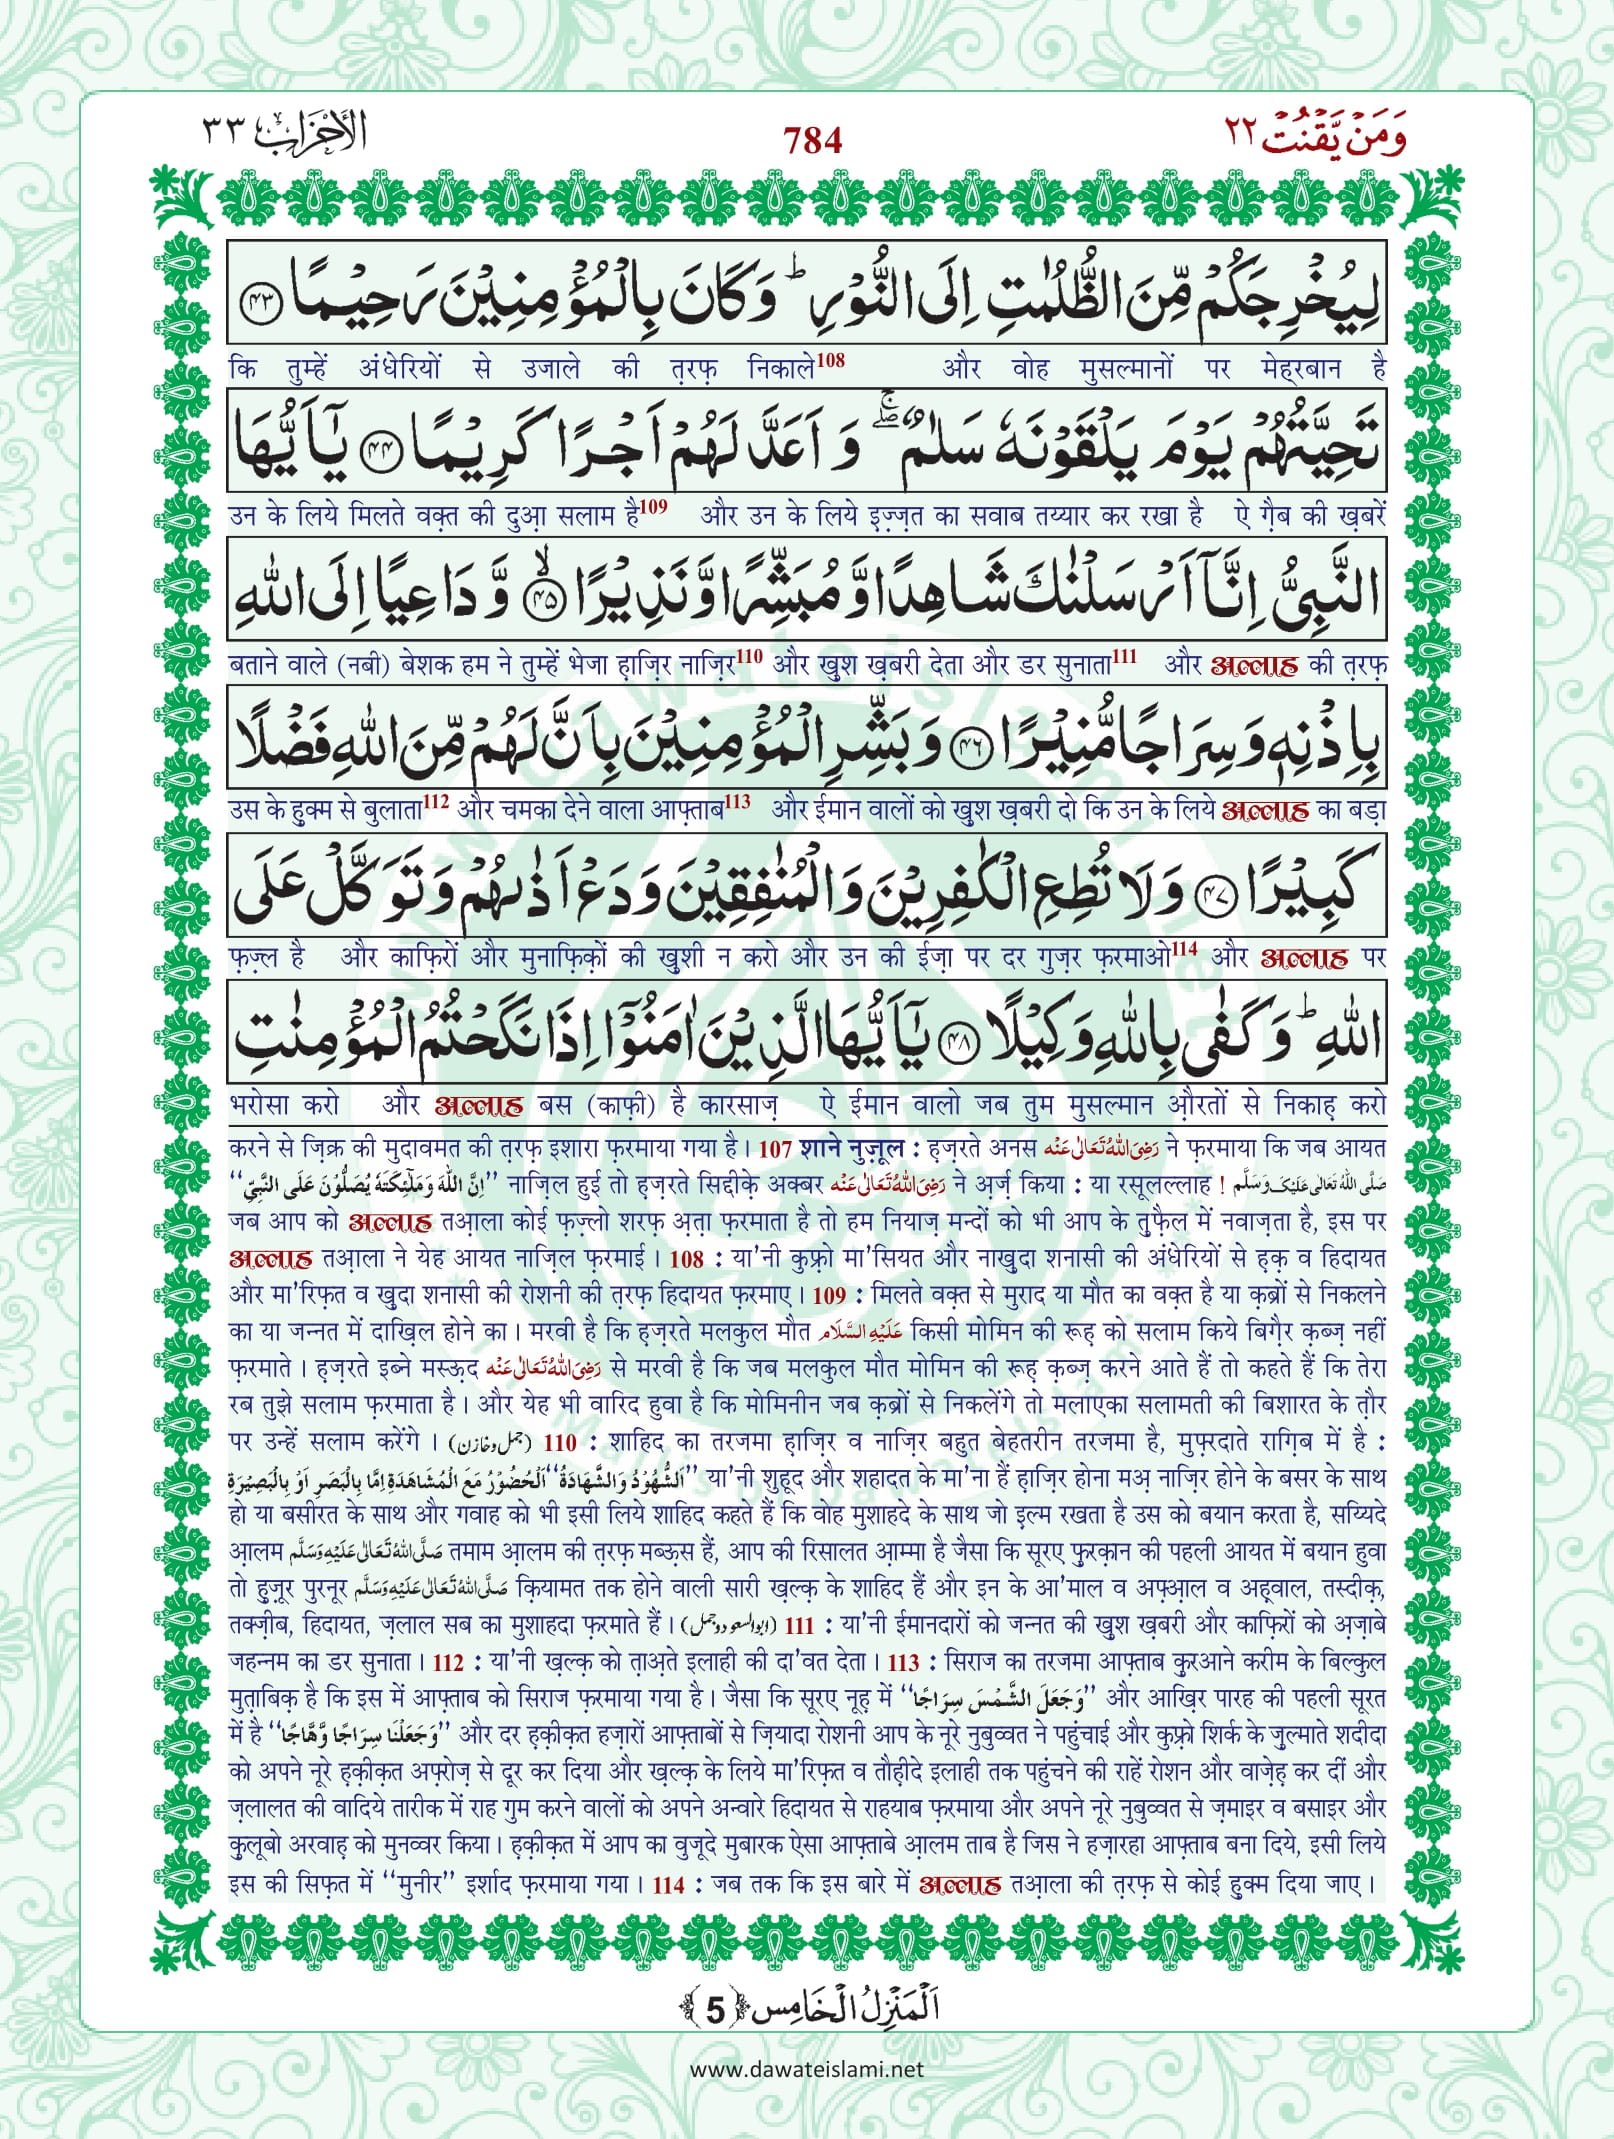 وَمَنْ يَّقْنُتْ ٢٢ 784 الْأَحْزَاب ٣٣
لِيُخْرِجَكُمْ مِّنَ الظُّلُمٰتِ اِلَى النُّوْرِ ؕ وَكَانَ بِالْمُؤْمِنِيْنَ رَحِيْمًا ﴿۴۳﴾
कि तुम्हें अंधेरियों से उजाले की त़रफ़ निकाले108 और वोह मुसल्मानों पर मेह्रबान है
تَحِيَّتُهُمْ يَوْمَ يَلْقَوْنَهٗ سَلٰمٌ ۖۚ وَ اَعَدَّ لَهُمْ اَجْرًا كَرِيْمًا ﴿۴۴﴾ يٰۤاَيُّهَا
उन के लिये मिलते वक़्त की दुआ़ सलाम है109 और उन के लिये इ़ज़्ज़त का सवाब तय्यार कर रखा है ऐ ग़ैब की ख़बरें
النَّبِيُّ اِنَّاۤ اَرْسَلْنٰكَ شَاهِدًا وَّ مُبَشِّرًا وَّ نَذِيْرًا ﴿ۙ۴۵﴾ وَّ دَاعِيًا اِلَى اللّٰهِ
बताने वाले (नबी) बेशक हम ने तुम्हें भेजा ह़ाज़िर नाज़िर110 और खुश ख़बरी देता और डर सुनाता111 और अल्लाह की त़रफ़
بِاِذْنِهٖ وَ سِرَاجًا مُّنِيْرًا ﴿۴۶﴾ وَ بَشِّرِ الْمُؤْمِنِيْنَ بِاَنَّ لَهُمْ مِّنَ اللّٰهِ فَضْلًا
उस के हुक्म से बुलाता112 और चमका देने वाला आफ़्ताब113 और ईमान वालों को खुश ख़बरी दो कि उन के लिये अल्लाह का बड़ा
كَبِيْرًا ﴿۴۷﴾ وَلَا تُطِعِ الْكٰفِرِيْنَ وَالْمُنٰفِقِيْنَ وَدَعْ اَذٰىهُمْ وَتَوَكَّلْ عَلَى
फ़ज़्ल है और काफ़िरों और मुनाफ़िक़ों की खुशी न करो और उन की ईज़ा पर दर गुज़र फ़रमाओ114 और अल्लाह पर
اللّٰهِ ؕ وَكَفٰى بِاللّٰهِ وَكِيْلًا ﴿۴۸﴾ يٰۤاَيُّهَا الَّذِيْنَ اٰمَنُوْۤا اِذَا نَكَحْتُمُ الْمُؤْمِنٰتِ
भरोसा करो और अल्लाह बस (काफ़ी) है कारसाज़ ऐ ईमान वालो जब तुम मुसल्मान औ़रतों से निकाह़ करो
करने से ज़िक्र की मुदावमत की त़रफ़ इशारा फ़रमाया गया है। 107 शाने नुज़ूल : ह़ज़रते अनस رَضِیَ اللّٰهُ تَعَالٰی عَنْه ने फ़रमाया कि जब आयत
‘‘اِنَّ اللّٰهَ وَمَلٰٓئِكَتَهٗ يُصَلُّوْنَ عَلَى النَّبِيِّ’’ नाज़िल हुई तो ह़ज़रते सिद्दीक़े अक्बर رَضِیَ اللّٰهُ تَعَالٰی عَنْه ने अ़र्ज़ किया : या रसूलल्लाह ! صَلَّى اللّٰهُ تَعَالٰى عَلَيْكَ وَسَلَّم
जब आप को अल्लाह तआ़ला कोई फ़ज़्लो शरफ़ अ़त़ा फ़रमाता है तो हम नियाज़ मन्दों को भी आप के तुफ़ैल में नवाज़ता है, इस पर
अल्लाह तआ़ला ने येह आयत नाज़िल फ़रमाई। 108 : या'नी कुफ़्रो मा'सियत और नाखुदा शनासी की अंधेरियों से ह़क़ व हिदायत
और मा'रिफ़त व खुदा शनासी की रोशनी की त़रफ़ हिदायत फ़रमाए। 109 : मिलते वक़्त से मुराद या मौत का वक़्त है या क़ब्रों से निकलने
का या जन्नत में दाख़िल होने का। मरवी है कि ह़ज़रते मलकुल मौत عَلَيْهِ السَّلَام किसी मोमिन की रूह़ को सलाम किये बिग़ैर क़ब्ज़ नहीं
फ़रमाते। ह़ज़रते इब्ने मस्ऊ़द رَضِیَ اللّٰهُ تَعَالٰی عَنْه से मरवी है कि जब मलकुल मौत मोमिन की रूह़ क़ब्ज़ करने आते हैं तो कहते हैं कि तेरा
रब तुझे सलाम फ़रमाता है। और येह भी वारिद हुवा है कि मोमिनीन जब क़ब्रों से निकलेंगे तो मलाएका सलामती की बिशारत के त़ौर
पर उन्हें सलाम करेंगे। (جمل وخازن) 110 : शाहिद का तरजमा ह़ाज़िर व नाज़िर बहुत बेहतरीन तरजमा है, मुफ़्रदाते राग़िब में है :
‘‘اَلشُّهُوْدُ وَالشَّهَادَةُ اَلْحُضُوْرُ مَعَ الْمُشَاهَدَةِ اِمَّا بِالْبَصَرِ اَوْ بِالْبَصِيْرَةِ’’ या'नी शुहूद और शहादत के मा'ना हैं ह़ाज़िर होना मअ़ नाज़िर होने के बसर के साथ
हो या बसीरत के साथ और गवाह को भी इसी लिये शाहिद कहते हैं कि वोह मुशाहदे के साथ जो इ़ल्म रखता है उस को बयान करता है, सय्यिदे
आ़लम صَلَّى اللّٰهُ تَعَالٰى عَلَيْهِ وَسَلَّم तमाम आ़लम की त़रफ़ मब्ऊ़स हैं, आप की रिसालत आ़म्मा है जैसा कि सूरए फ़ुरक़ान की पहली आयत में बयान हुवा
तो हुज़ूर पुरनूर صَلَّى اللّٰهُ تَعَالٰى عَلَيْهِ وَسَلَّم क़ियामत तक होने वाली सारी ख़ल्क़ के शाहिद हैं और इन के आ'माल व अफ़्आ़ल व अह़्वाल, तस्दीक़,
तक्ज़ीब, हिदायत, ज़लाल सब का मुशाहदा फ़रमाते हैं। (ابو السعود وجمل) 111 : या'नी ईमानदारों को जन्नत की खुश ख़बरी और काफ़िरों को अ़ज़ाबे
जहन्नम का डर सुनाता। 112 : या'नी ख़ल्क़ को त़ाअ़ते इलाही की दा'वत देता। 113 : सिराज का तरजमा आफ़्ताब कुरआने करीम के बिल्कुल
मुत़ाबिक़ है कि इस में आफ़्ताब को सिराज फ़रमाया गया है। जैसा कि सूरए नूह़ में ‘‘وَجَعَلَ الشَّمْسَ سِرَاجًا’’ और आख़िर पारह की पहली सूरत
में है ‘‘وَجَعَلْنَا سِرَاجًا وَّهَّاجًا’’ और दर ह़क़ीक़त हज़ारों आफ़्ताबों से ज़ियादा रोशनी आप के नूरे नुबुव्वत ने पहुंचाई और कुफ़्रो शिर्क के ज़ुल्माते शदीदा
को अपने नूरे ह़क़ीक़त अफ़्रोज़ से दूर कर दिया और ख़ल्क़ के लिये मा'रिफ़्त व तौह़ीदे इलाही तक पहुंचने की राहें रोशन और वाज़ेह़ कर दीं और
ज़लालत की वादिये तारीक में राह गुम करने वालों को अपने अन्वारे हिदायत से राहयाब फ़रमाया और अपने नूरे नुबुव्वत से ज़माइर व बसाइर और
क़ुलूबो अरवाह़ को मुनव्वर किया। ह़क़ीक़त में आप का वुजूदे मुबारक ऐसा आफ़्ताबे आ़लम ताब है जिस ने हज़ारहा आफ़्ताब बना दिये, इसी लिये
इस की सिफ़त में ‘‘मुनीर’’ इर्शाद फ़रमाया गया। 114 : जब तक कि इस बारे में अल्लाह तआ़ला की त़रफ़ से कोई हुक्म दिया जाए।
اَلْمَنْزِلُ الْخَامِس ﴿5﴾
www.dawateislami.net